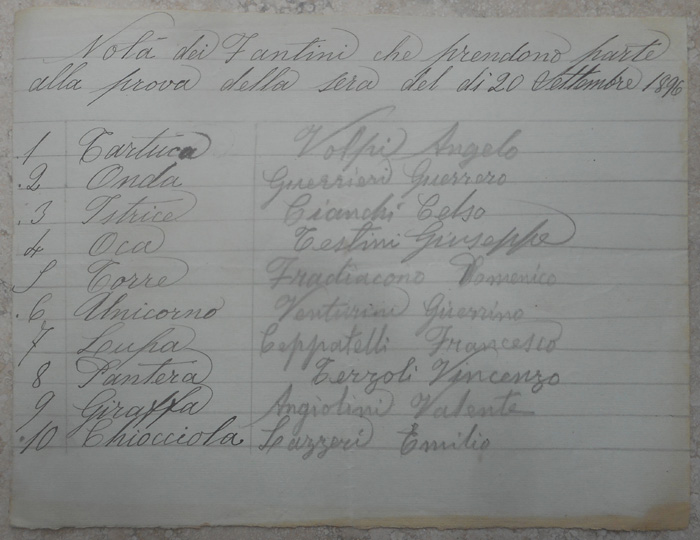 Nota dei Fantini che prendono parte
alla prova della sera del di 20 Settembre 1896
1 Tartuca Volpi Angelo
2 Onda Guerrieri Guerrero
3 Istrice Cianchi Celso
4 Oca Testini Giuseppe
5 Torre Fradiacono Domenico
6 Unicorno Venturini Guerrino
7 Lupa Ceppatelli Francesco
8 Pantera Terzoli Vincenzo
9 Giraffa Angiolini Valente
10 Chiocciola Lazzeri Emilio